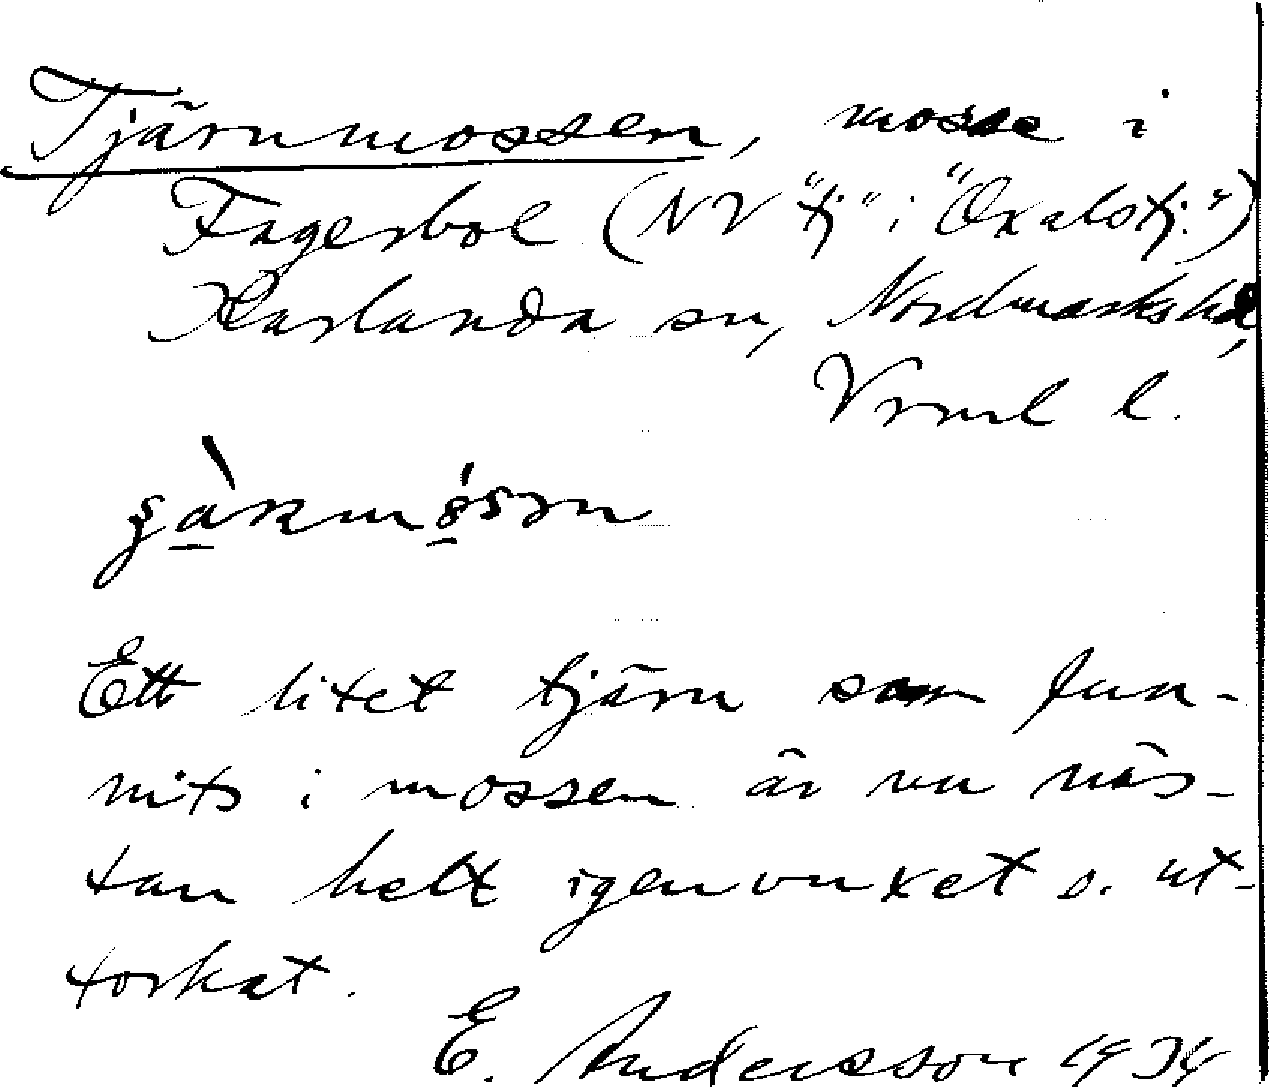 Tjärnmossen, mosse i
Fagerbol (NV "tj" i "Oxalstj.")
Karlanda sn, Nordmarks hd,
Vrml l.
Ett litet tjärn som fun-
nits i mossen är nu näs-
tan helt igenvuxet o. ut-
torkat.
E. Andersson 1934